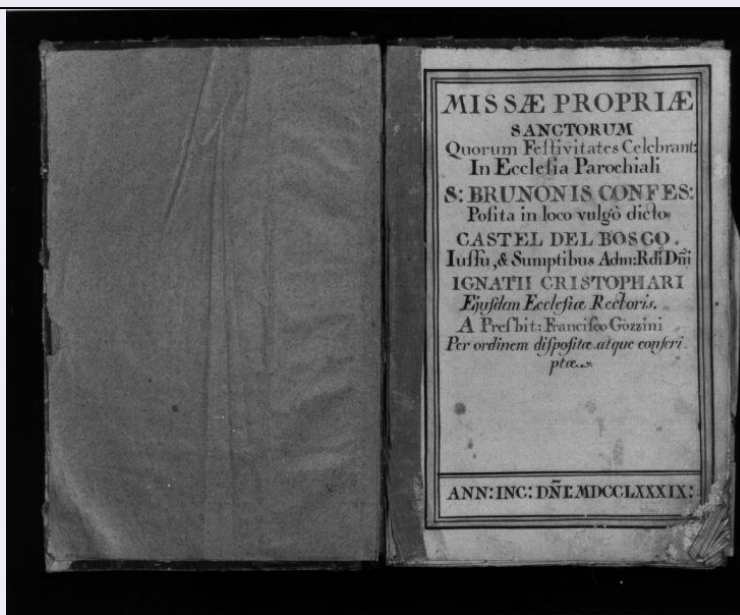 MISSÆ PROPRIÆ
SANCTORUM
Quorum Feſtivitates Celebrant:
In Eccleſia Parochiali
S: BRUNONIS CONFES:
Poſita in loco vulgò dicto
CASTEL DEL BOSCO.
Iuſſu, & Sumptibus Adm: Rd̃i Dñi
IGNATII CRISTOPHARI
Ejuſdem Eccleſiæ Rectoris.
A Preſbit: Franciſco Gozzini
Per ordinem diſpoſitæ atque conſcri
ptæ.
ANN: INC: DÑI: MDCCLXXXIX: